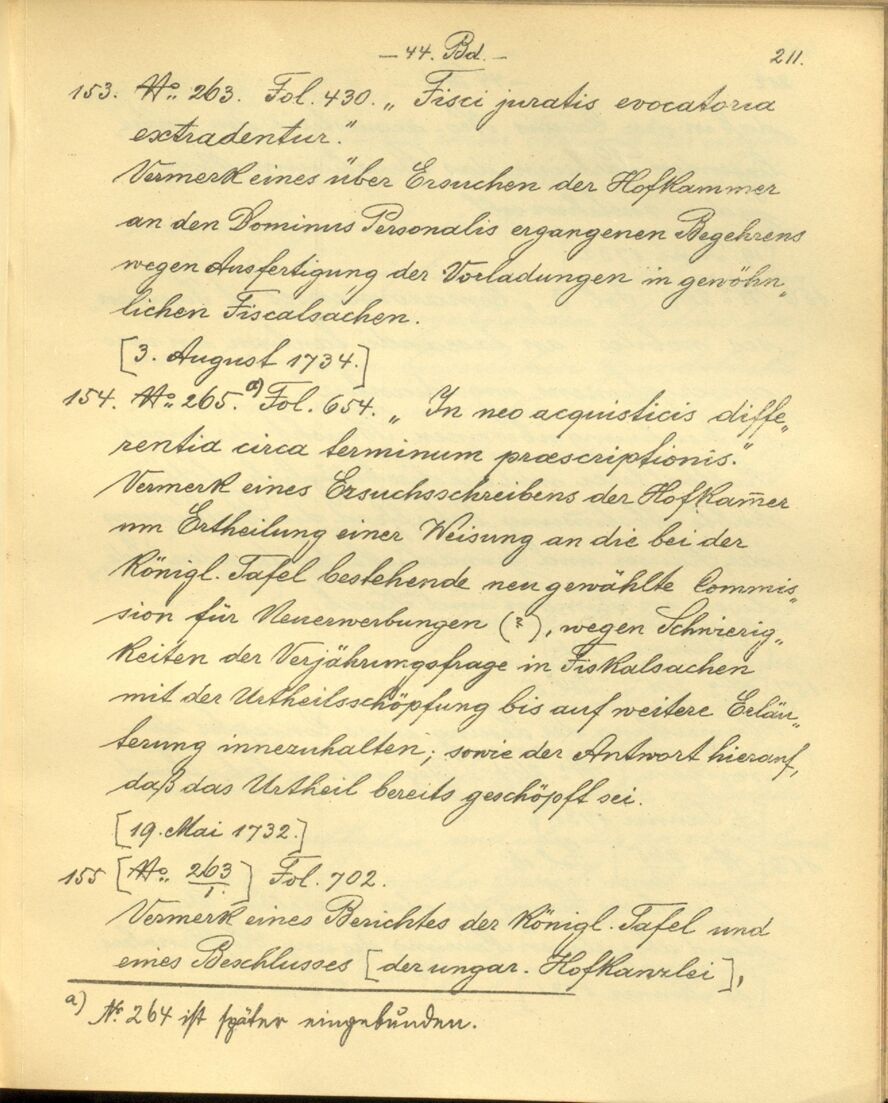 — 44. Bd. —
211.
153. No. 263. Fol. 430. „Fisci juratis evocatoria
extradentur."
Vermerk eines über Ersuchen der Hofkammer
an den Dominus Personalis ergangenen Begehrens
wegen Ausfertigung der Vorladungen in gewöhn„
lichen Fiscalsachen.
[3. August 1734.]
154. No. 265. a) Fol. 654. „In neo acquisticis diffe„
rentia circa terminum præscriptionis."
Vermerk eines Ersuchsschreibens der Hofkam̅er
um Ertheilung einer Weisung an die bei der
Königl. Tafel bestehende neu gewählte Commis„
sion für Neuerwerbungen (?), wegen Schwierig„
keiten der Verjährungsfrage in Fiskalsachen
mit der Urtheilsschöpfung bis auf weitere Erläu„
terung innezuhalten; sowie der Antwort hierauf,
daß das Urtheil bereits geschöpft sei.
[19. Mai 1732.]
155 [No. 263/1.] Fol. 702.
Vermerk eines Berichtes der Königl. Tafel und
eines Beschlusses [der ungar. Hofkanzlei],
a) Nr. 264 ist später eingebunden.